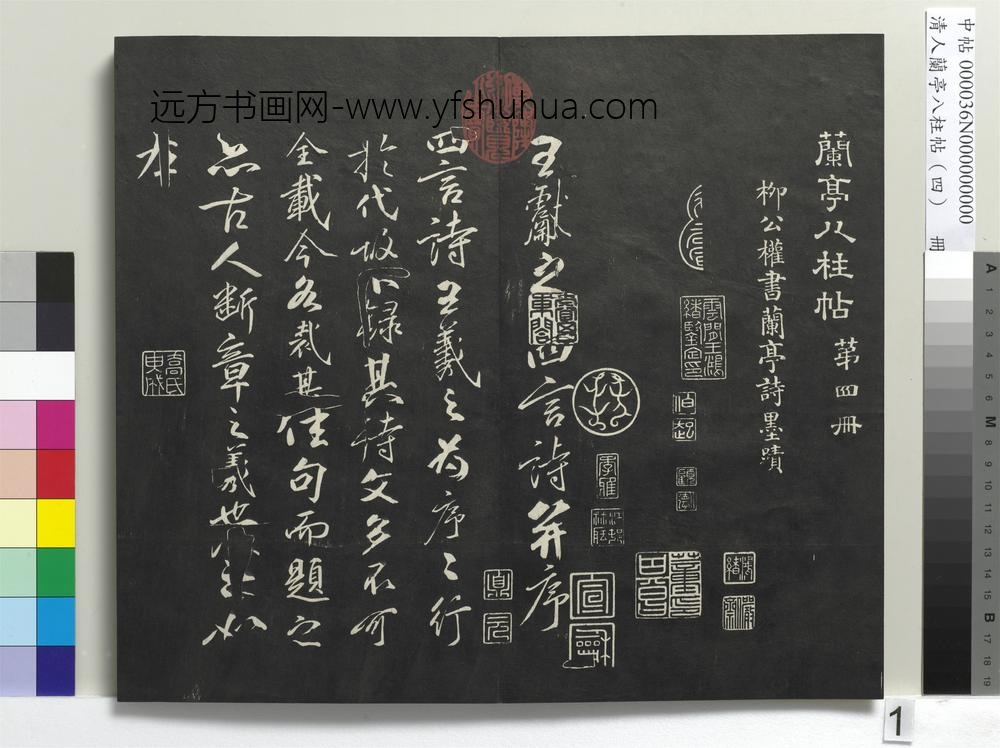 远方书画网-www.yfshuhua.com
中帖 000036N000000000
清人蘭亭八柱帖（四） 冊
蘭亭八柱帖 苐四冊
柳公權書蘭亭詩墨蹟
王獻之四言詩并序
四言詩王羲之為序序行
於代故不錄其詩文多不可
全載今各裁其佳句而題之
亦古人斷章之義也
非
宣
龢
A 1 2 3 4 5 6 M 8 9 10 11 12 13 14 15 B 17 18 19
1